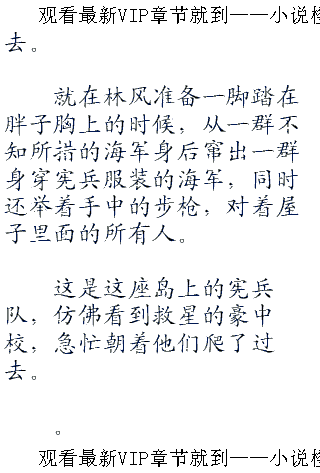 观看最新VIP章节就到——小说
去。
就在林风准备一脚踏在
胖子胸上的时候，从一群不
知所措的海军身后窜出一群
身穿宪兵服装的海军，同时
还举着手中的步枪，对着屋
子里面的所有人。
这是这座岛上的宪兵
队，仿佛看到救星的豪中
校，急忙朝着他们爬了过
去。
。
观看最新VIP章节就到——小说